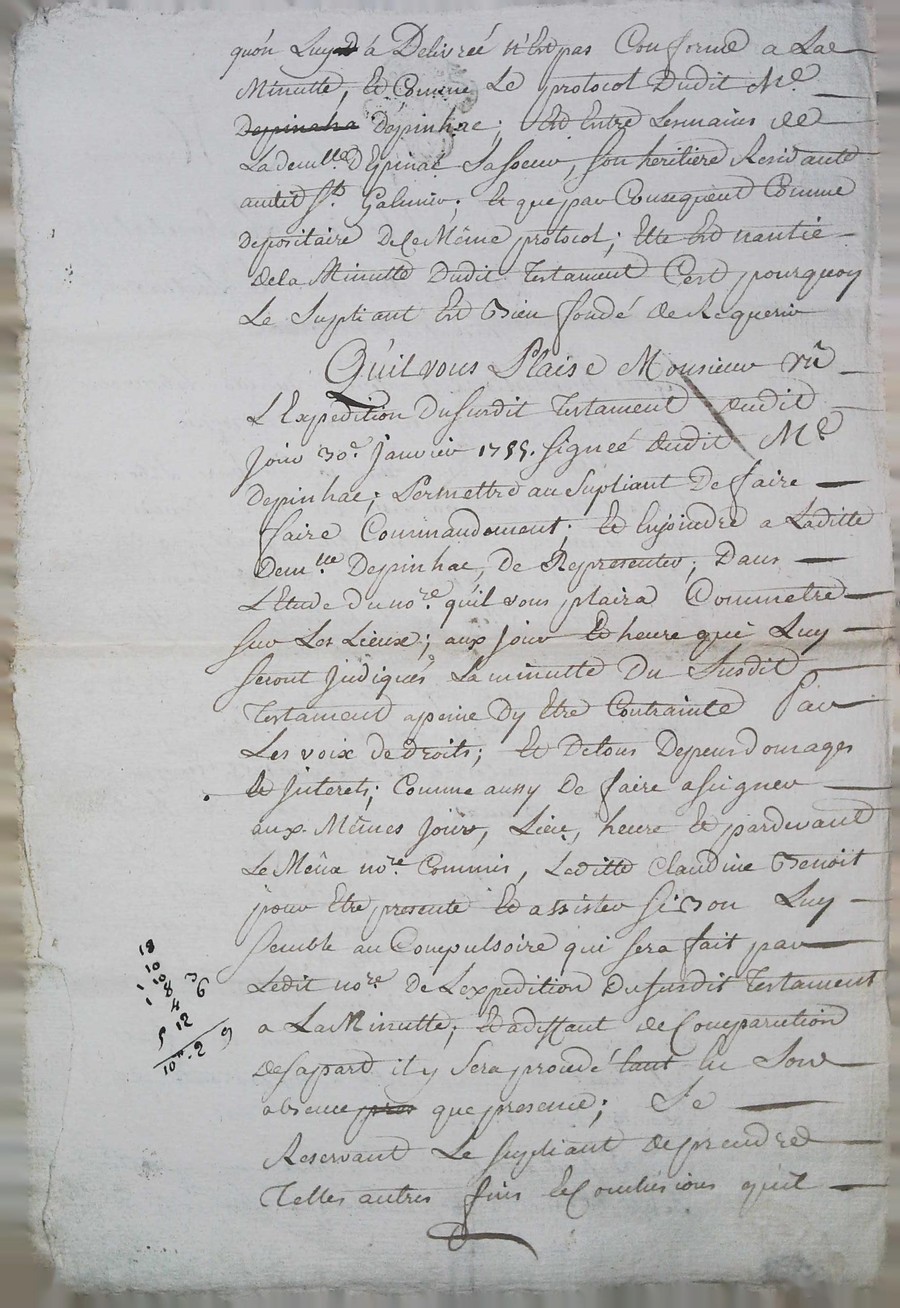 qu'on Luy à Delivreé n'Est pas Conforme a La
Minutte, Et Comme Le protocol Dudit Me.
Depinaha Depinhac; Est Entre Les mains de
La demlle. dEpinac Sa soeur, son heritiere Residante
audit St. Galmier; Et que par Consequent Comme
depositaire de Ce Même protocol; Elle Est nantie
de la Minutte Dudit Testament C'est pourquoy
Le Supliant Est Bien fondé de Requerir
Qu'il vous Plaise Monsieur Vû
L'Expédition Du susdit Testament dudit
Jour 30e. Janvier 1755. signeé dudit Me
Depinhac; Permettre au Supliant De faire
faire Commandement; Et Enjoindre a Laditte
Demlle Depinhac, de Representer, Dans
L'Etude Du nore. qu'il vous plaira Commetre
sur Les Lieux; aux Jour Et heure qui Luy
seront Jndiqués La minutte Du Susdit
Testament a peine Dy Etre Contrainte Par
Les voix de droits; Et De tous Depens domages
Et Jnterets; Comme aussy De faire assigner
aux Mêmes Jour, Lieu, heure Et pardevant
Le Même nore. Commis, Laditte Claudine Benoit
pour Etre presente Et assister si Bon Luy
semble au Compulsoire qui sera fait par
Ledit nore. De L'expedition Du susdit Testament
a La Minutte; Et a deffaut de Comparution
de sa part il y sera procedé tant En Son
absence que presence; Se
Reservant Le supliant de prendre
Telles autres fins Et Conclusions qu'il
18
10
1 10 3
1 8 6
4
5 12 9
10 - 2